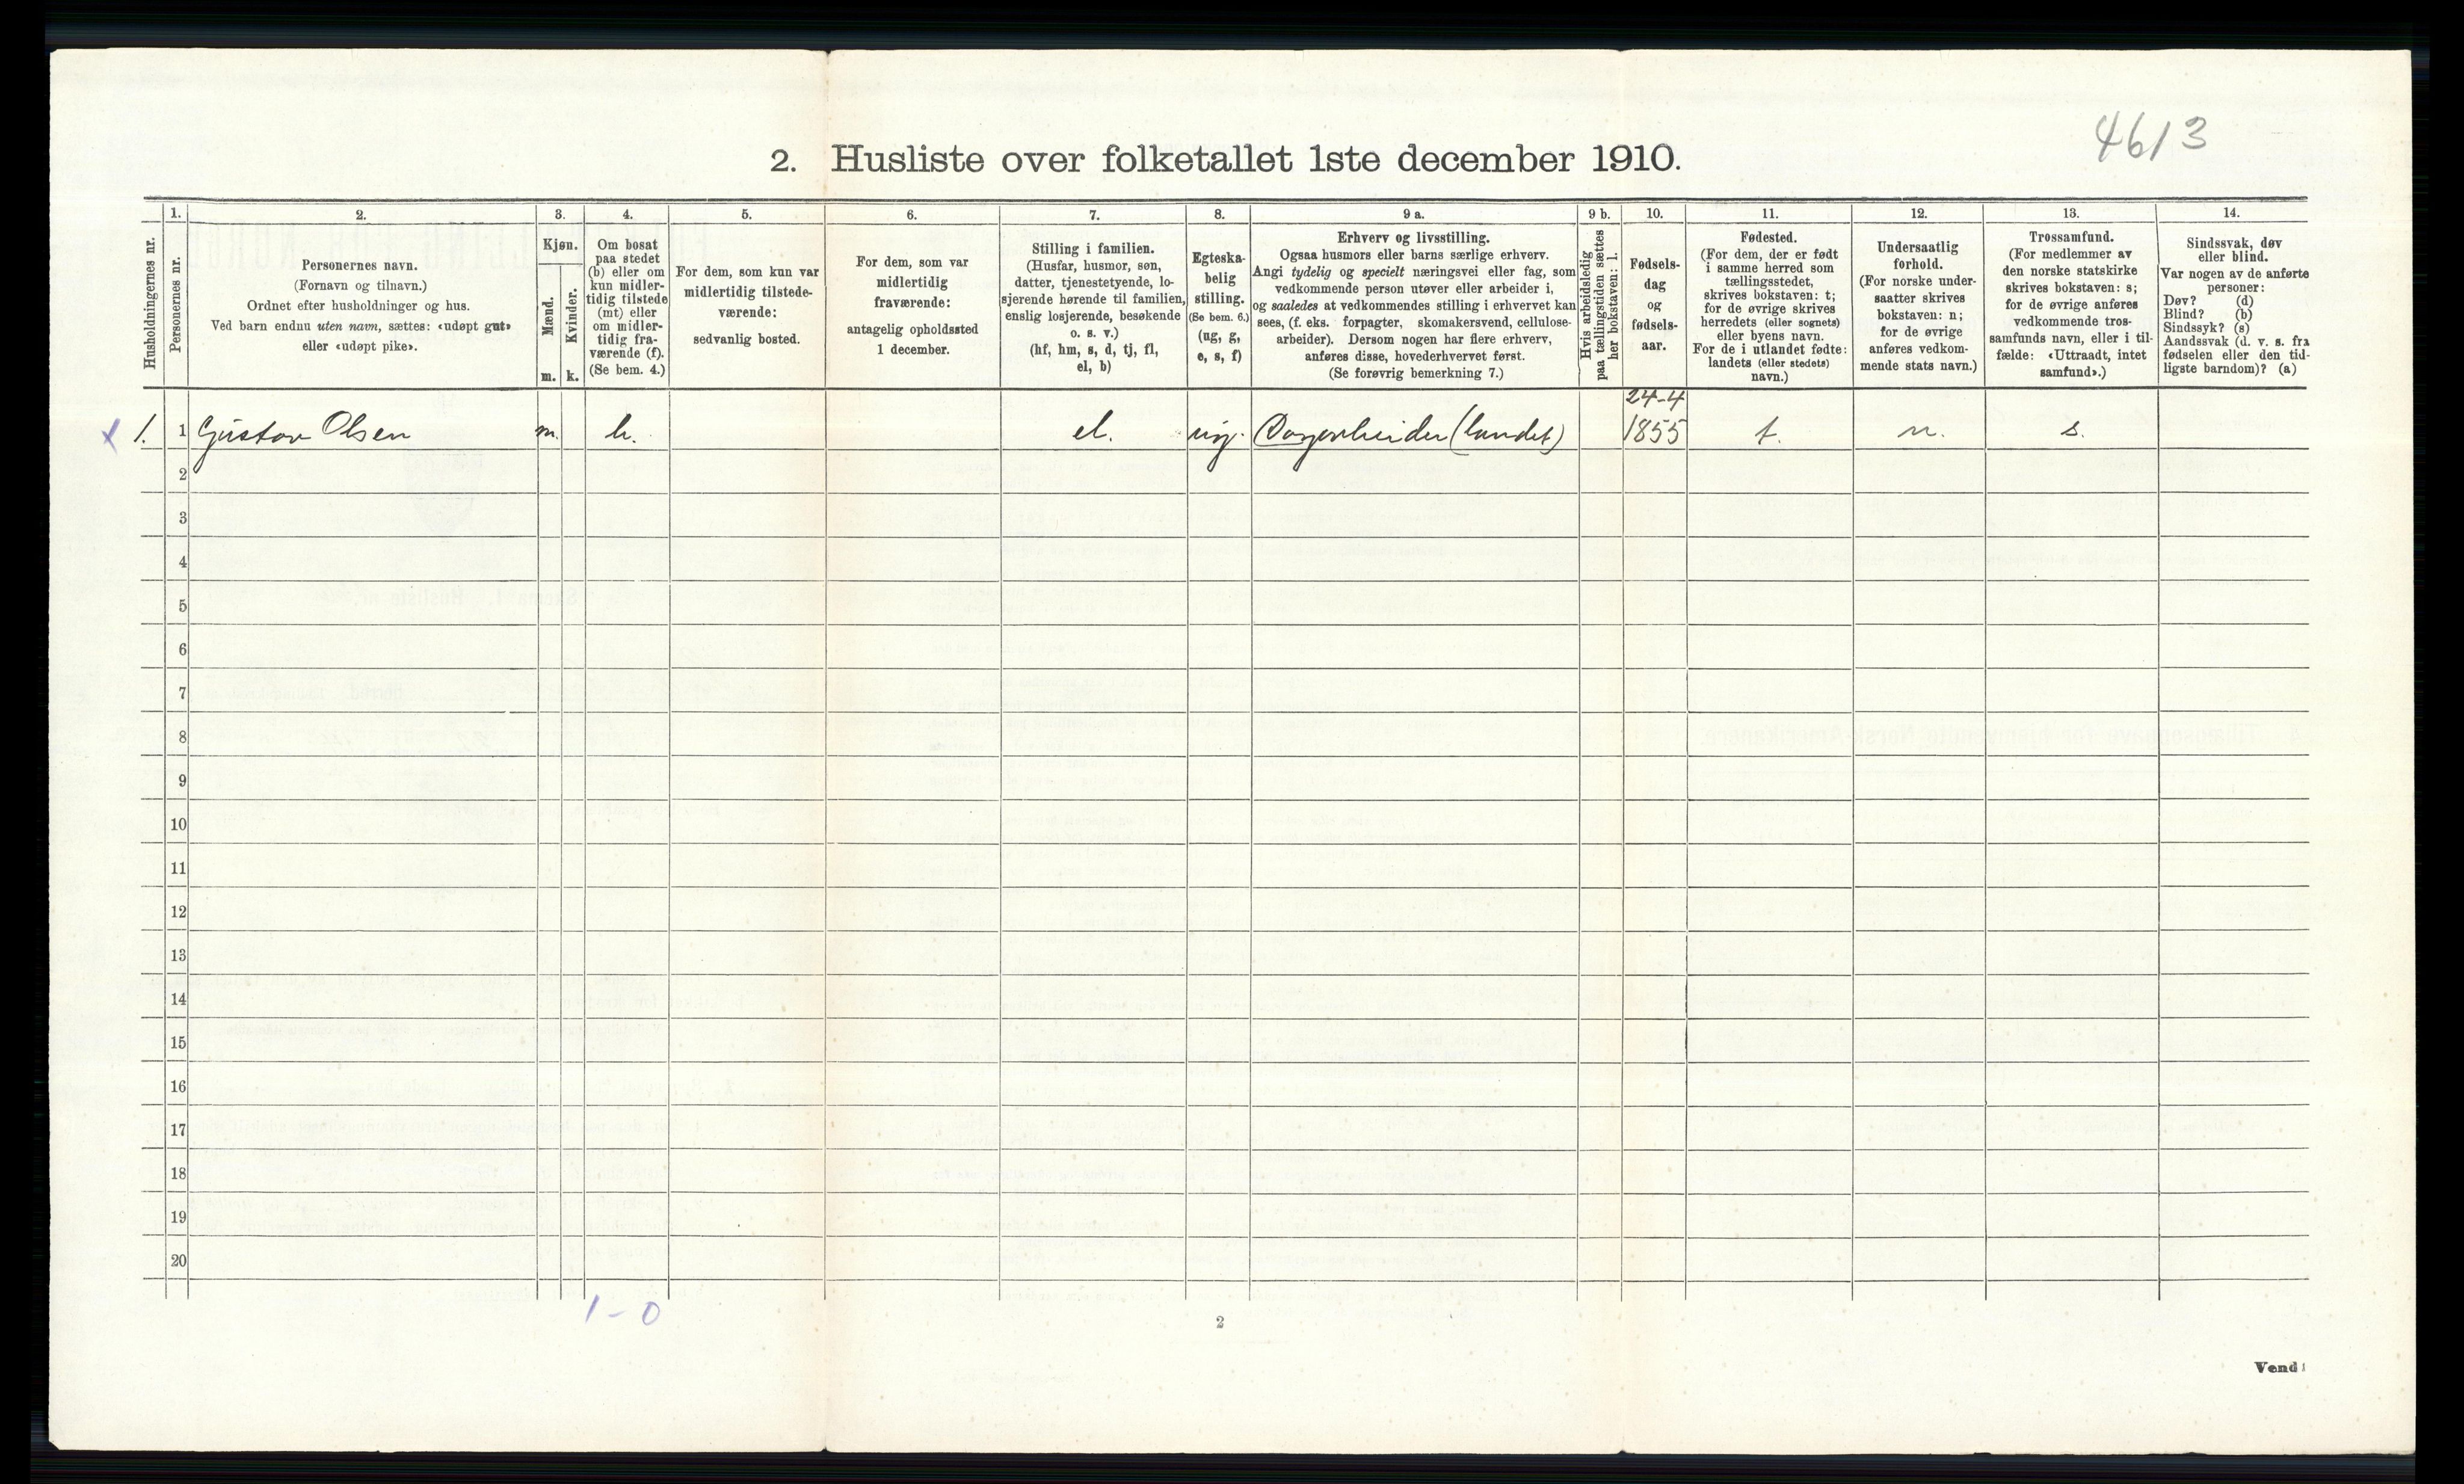 4613
2. Husliste over folketallet 1ste december 1910.
Husholdningernes nr.
1.
Personernes nr.
2.
Personernes navn.
(Fornavn og tilnavn.)
Ordnet efter husholdninger og hus.
Ved barn endnu uten navn, sættes: «udøpt gut»
eller «udøpt pike».
3.
Kjøn.
Mænd.
m.
Kvinder.
k.
4.
Om bosat
paa stedet
(b) eller om
kun midler-
tidig tilstede
(mt) eller
om midler-
tidig fra-
værende (f).
(Se bem. 4.)
5.
For dem, som kun var
midlertidig tilstede-
værende:
sedvanlig bosted.
6.
For dem, som var
midlertidig
fraværende:
antagelig opholdssted
1 december.
7.
Stilling i familien.
(Husfar, husmor, søn,
datter, tjenestetyende, lo-
sjerende hørende til familien,
enslig losjerende, besøkende
o. s. v.)
(hf, hm, s, d, tj, fl,
el, b)
8.
Egteska-
belig
stilling.
(Se bem. 6.)
(ug, g,
e, s, f)
9 a.
Erhverv og livsstilling.
Ogsaa husmors eller barns særlige erhverv.
Angi tydelig og specielt næringsvei eller fag, som
vedkommende person utøver eller arbeider i,
og saaledes at vedkommendes stilling i erhvervet kan
sees, (f. eks. forpagter, skomakersvend, cellulose-
arbeider). Dersom nogen har flere erhverv,
anføres disse, hovederhvervet først.
(Se forøvrig bemerkning 7.)
9 b.
Hvis arbeidsledig
paa tællingstiden sættes
her bokstaven: l.
10.
Fødsels-
dag
og
fødsels-
aar.
11.
Fødested.
(For dem, der er født
i samme herred som
tællingsstedet,
skrives bokstaven: t;
for de øvrige skrives
herredets (eller sognets)
eller byens navn.
For de i utlandet fødte:
landets (eller stedets)
navn.)
12.
Undersaatlig
forhold.
(For norske under-
saatter skrives
bokstaven: n;
for de øvrige
anføres vedkom-
mende stats navn.)
13.
Trossamfund.
(For medlemmer av
den norske statskirke
skrives bokstaven: s;
for de øvrige anføres
vedkommende tros-
samfunds navn, eller i til-
fælde: «Uttraadt, intet
samfund».)
14.
Sindssvak, døv
eller blind.
Var nogen av de anførte
personer:
Døv? (d)
Blind? (b)
Sindssyk? (s)
Aandssvak (d. v. s. fra
fødselen eller den tid-
ligste barndom)? (a)
24-4
x 1. 1 Gustav Olsen m. b. el. ug. Dagarbeider (landet) 1855 t. n. s.
2
3
4
5
6
7
8
9
10
11
12
13
14
15
16
17
18
19
20
1-0
2
Vend!